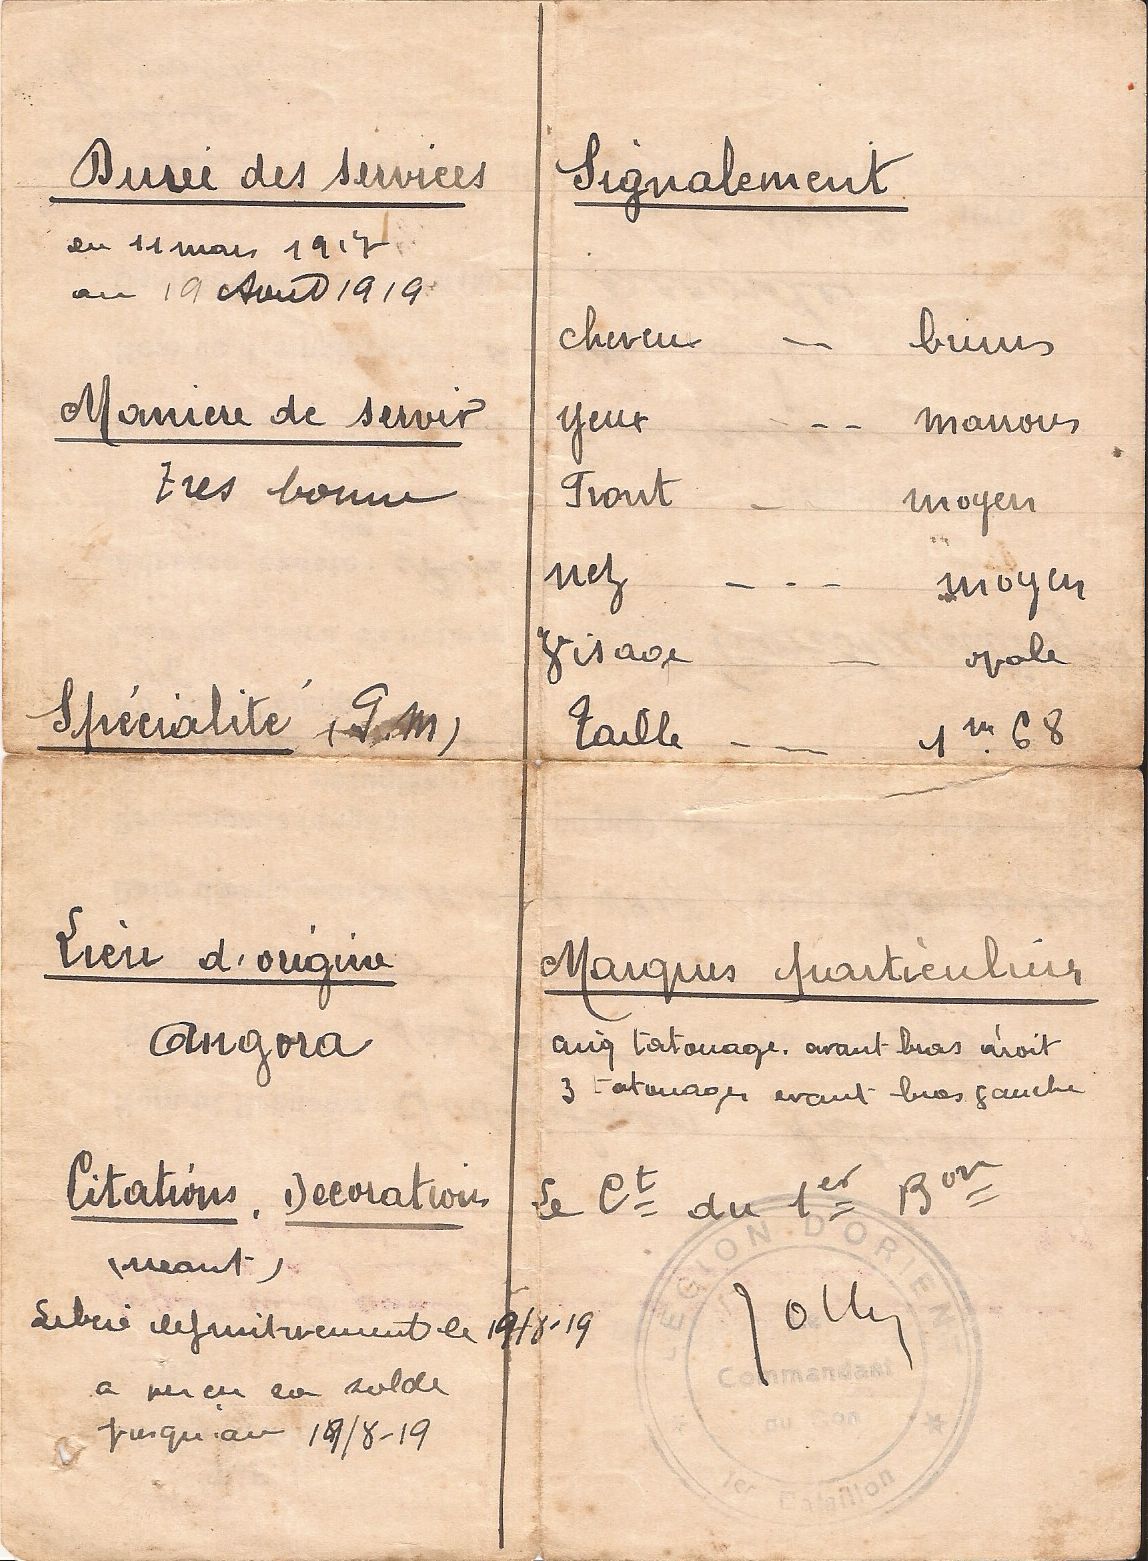 Durée des services
du 11 mars 1917
au 19 Aout 1919
Maniere de servir
tres bonne
Spécialité (F.M)
Lieu d'origine
Angora
Citations, Decorations
(neant)
Libéré definitivement le 19/8-19
a perçu sa solde
jusqu'au 19/8-19
Signalement
cheveux -- bruns
yeux -- marrons
Front - moyen
nez --- moyen
Visage - ovale
Taille -- 1m. 68
Marques particulières
cinq tatouage. avant bras droit
3 tatouages avant bras gauche
Le Ct du 1er Bon
Jolly
LEGION D'ORIENT
Le
Commandant
du Bon
1er Bataillon